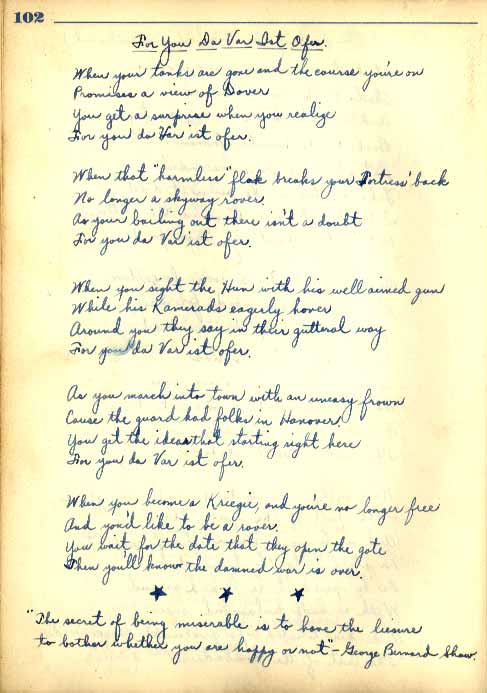 102
For You Da Var Ist Ofer.
When your tanks are gone and the course you're on
Promises a view of Dover
You get a surprise when you realize
For you da Var ist ofer.
When that "harmless" flak breaks your Fortress' back
No longer a skyway rover
As your bailing out there isn't a doubt
For you da Var ist ofer.
When you sight the Hun with his well aimed gun
While his Kamerads eagerly hover
Around you they say in their gutteral way
For you da Var ist ofer.
As you march into town with an uneasy frown
Cause the guard had folks in Hanover,
You get the idea that starting right here
For you da Var ist ofer.
When you become a Kriegie, and you're no longer free
And you'd like to be a rover.
You wait for the date that they open the gate
Then you'll know the damned war is over.
"The secret of being miserable is to have the liesure
to bother whether you are happy or not" - George Bernard Shaw.